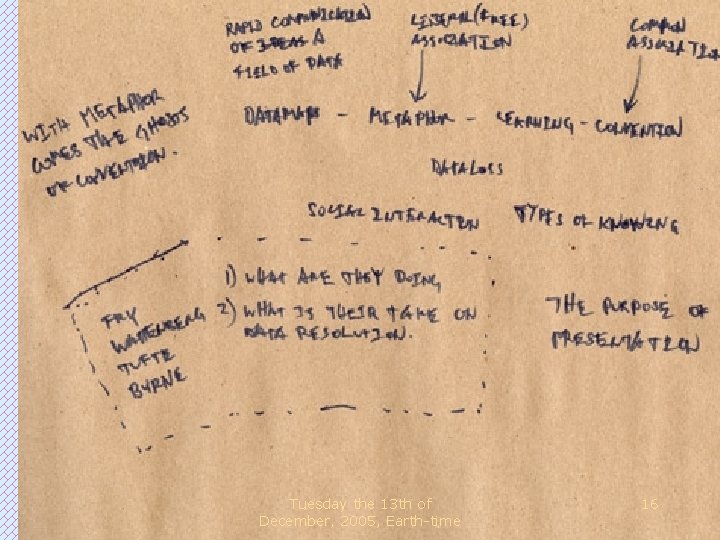 RAPID COMMUNICATION
OF IDEAS A
FIELD OF DATA
LIBERAL (FREE)
ASSOCIATION
COMMON
ASSOCIATION
WITH METAPHOR
COMES THE GHOSTS
OF CONVENTION.
DATAMAPS - METAPHOR - LEARNING - CONVENTION
DATA LOSS
SOCIAL INTERACTION
TYPES OF KNOWING
1) WHAT ARE THEY DOING
2) WHAT IS THEIR TAKE ON
DATA RESOLUTION.
FRY
WATTENBERG
TUFTE
BYRNE
THE PURPOSE OF
PRESENTATION
Tuesday the 13th of
December, 2005, Earth-time
16